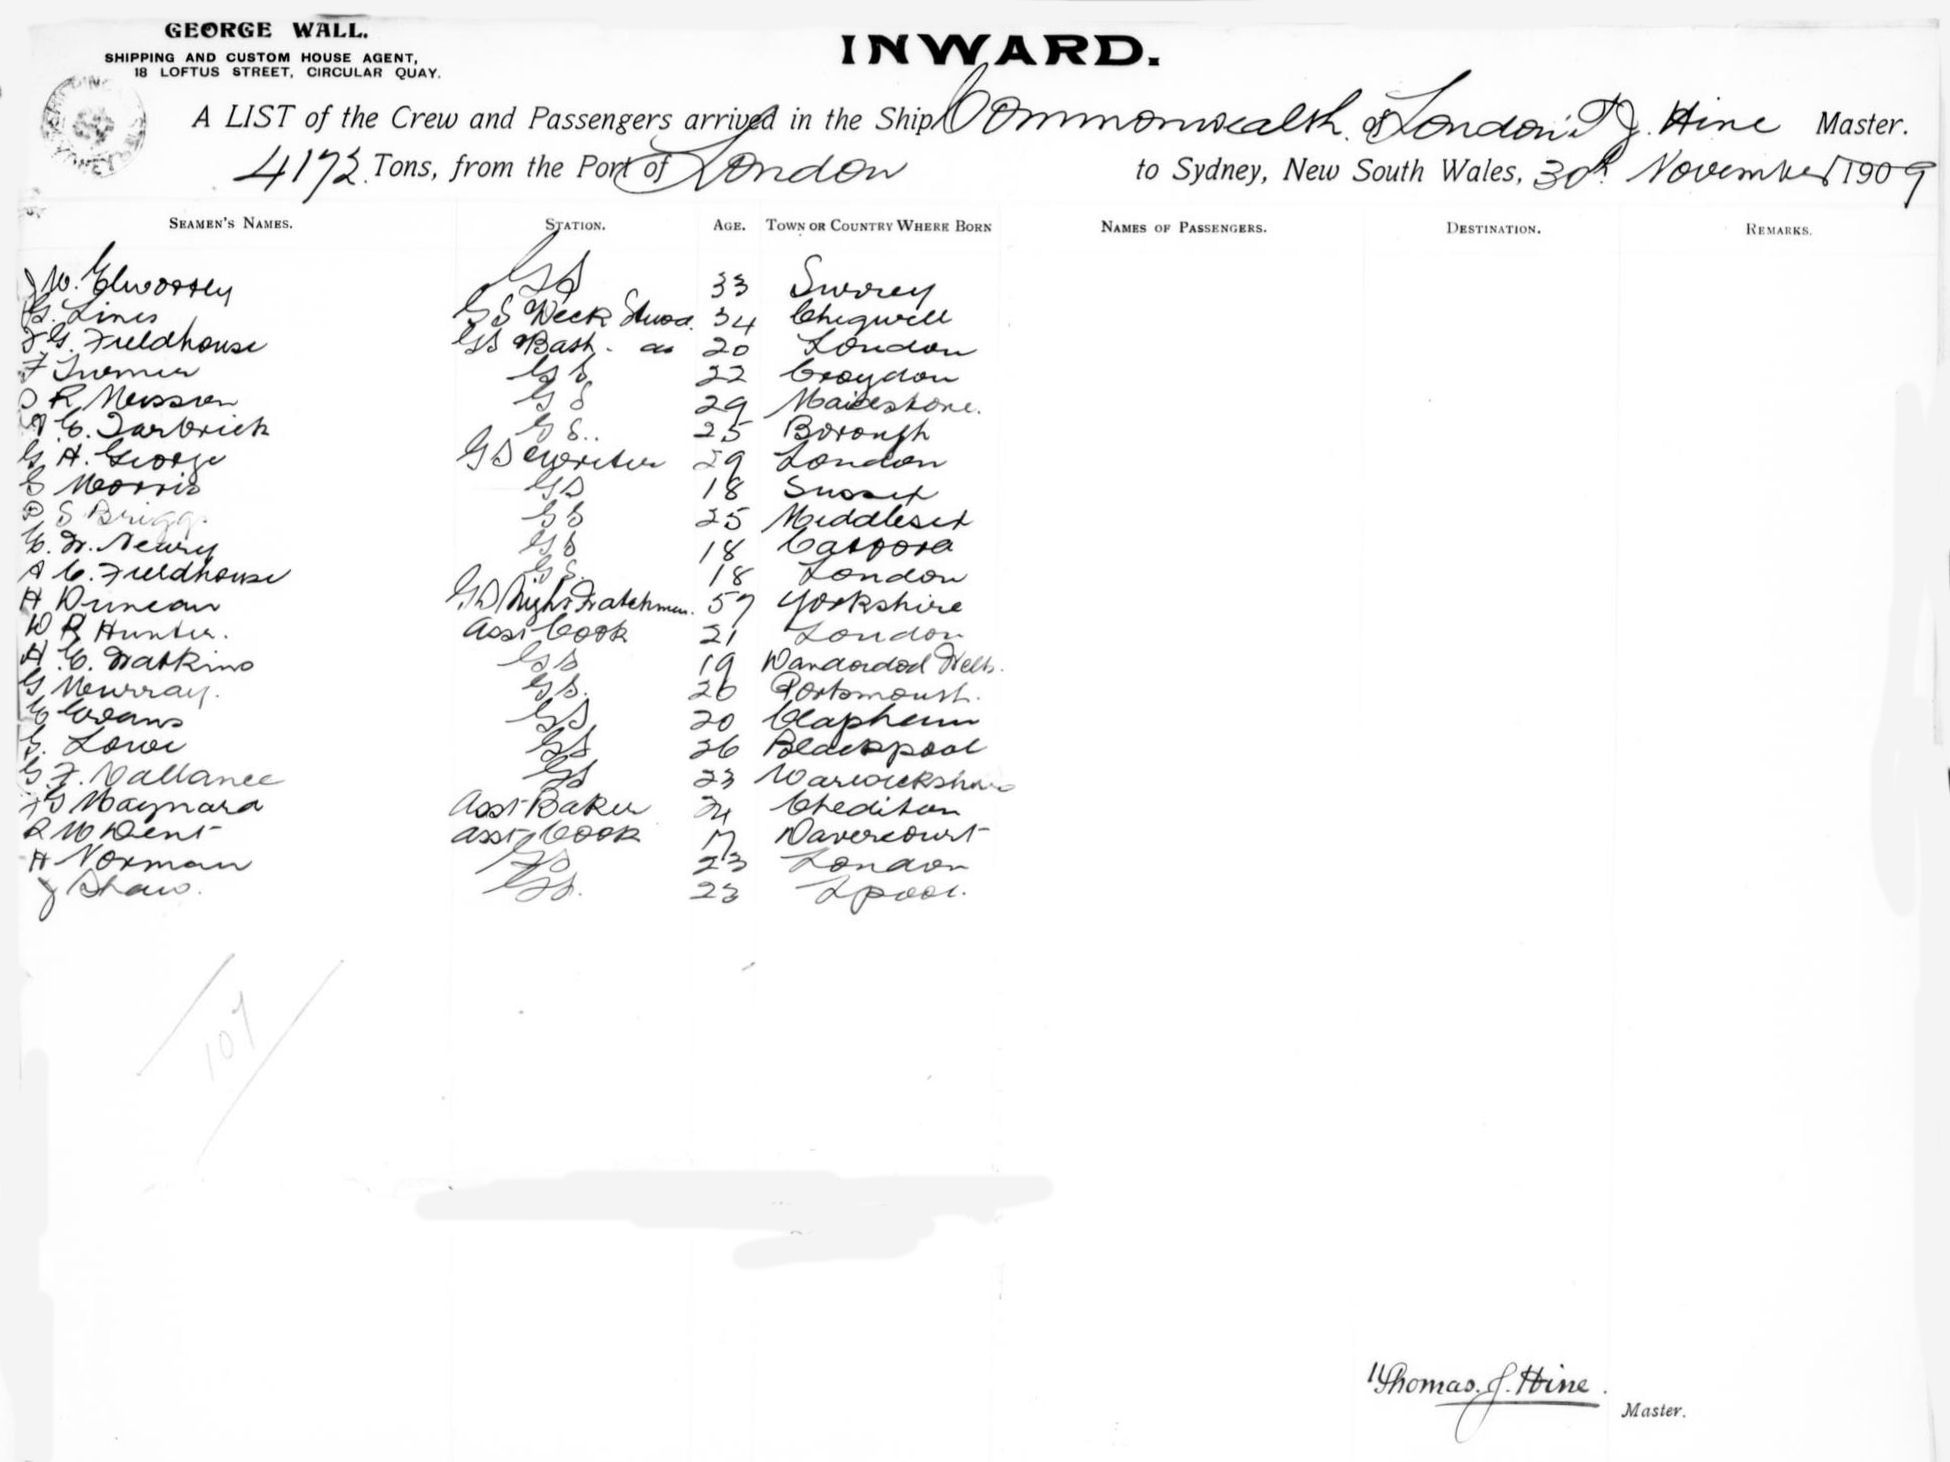 GEORGE WALL.
SHIPPING AND CUSTOM HOUSE AGENT,
18 LOFTUS STREET, CIRCULAR QUAY.
INWARD.
A LIST of the Crew and Passengers arrived in the Ship Commonwealth of London T J. Hine Master.
4172 Tons, from the Port of London to Sydney, New South Wales, 30th November 1909
SEAMEN'S NAMES. STATION. AGE. TOWN OR COUNTRY WHERE BORN NAMES OF PASSENGERS. DESTINATION. REMARKS.
J W. Elworthy GS 33 Surrey
G. Lines GS Deck 34 Chigwell
G. Fieldhouse GS Bath 20 London
F Turner GS 22 Croydon
R GS 29 Maidstone.
C. Tarbrick GS.. 25 Borough
G H. George GS Writer 29 London
Morris GS 18 Sussex
S Briggs GS 25 Middlesex
Newry GS 18
A C. Fieldhouse GS. 18 London
H Duncan GS Night Watchman. 57 Yorkshire
W R Hunter. Asst Cook 21 London
H. C. Watkins GS 19
G Murray. GS. 26 Portsmouth.
C Evans GS 20 Clapham
G. Lowe GS 26 Blackpool
G. F. Vallance GS 23 Warwickshire
Maynard Asst Baker 24 Chediton
R W Dent Asst Cook 17 Dovercourt
H Norman GS 23 London
J Shaw. GS. 23 Lpool.
107
Thomas. J. Hine.
Master.